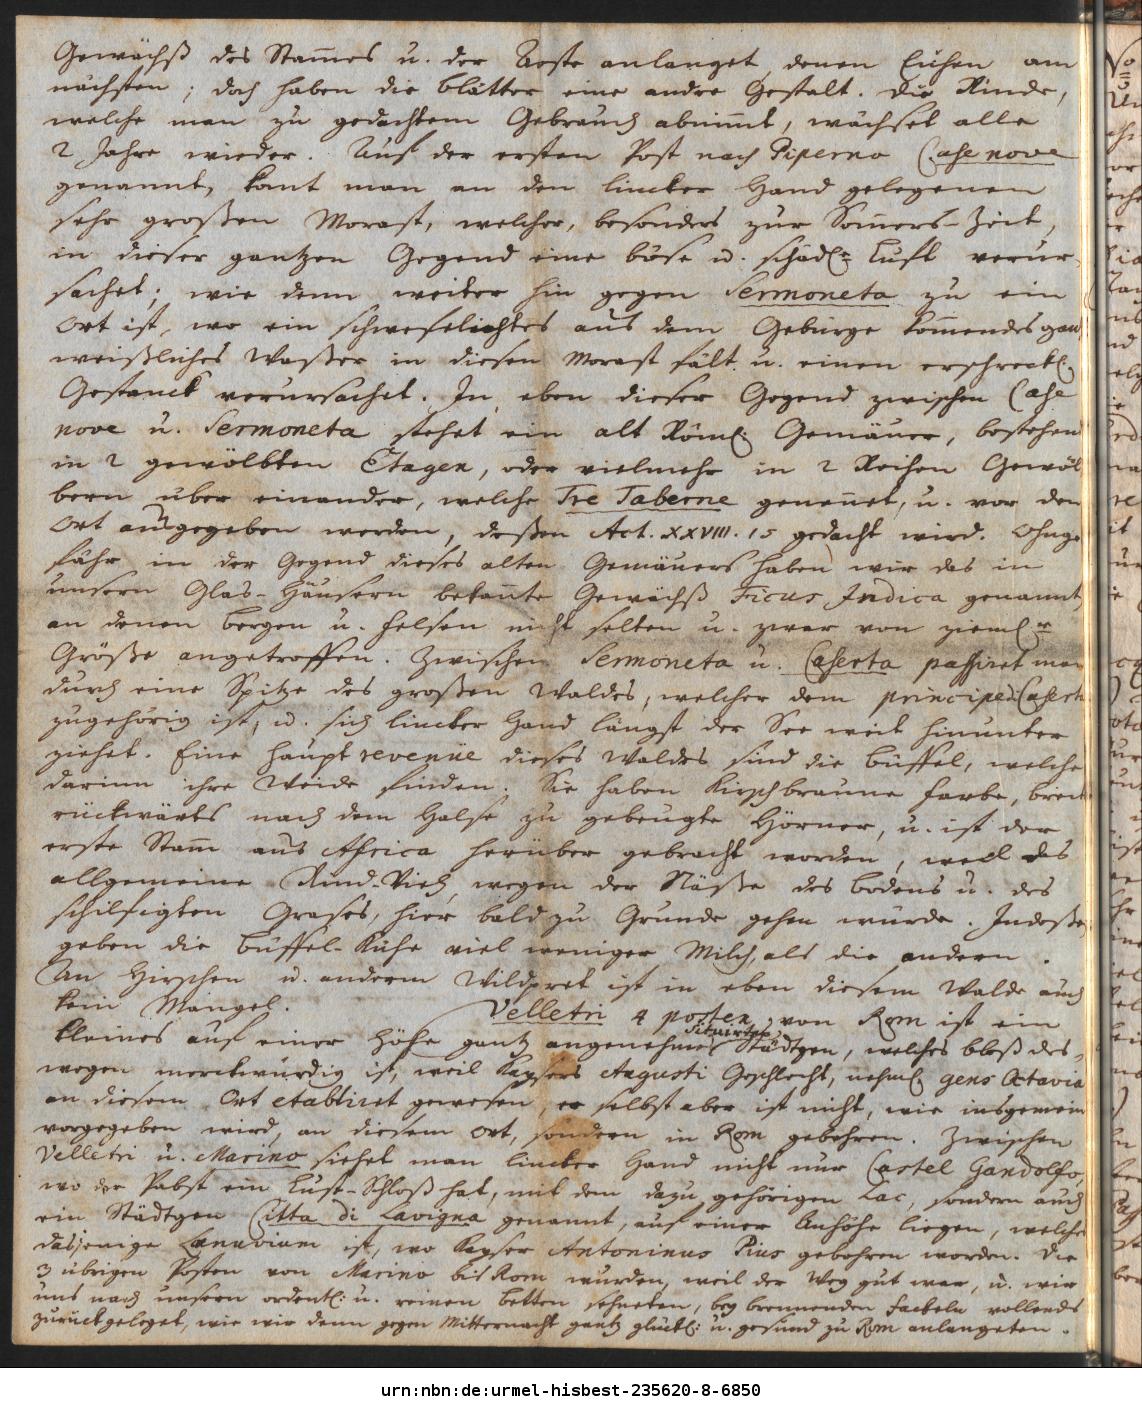 Gewächß des Stam̄es u. der Aeste anlanget denen Eichen am
nächsten; doch haben die blätter eine andre Gestalt. Die Rinde,
welche man zu gedachtem Gebrauch abnim̄t, wächset alle
2 Jahre wieder. Auf der ersten Post nach Piperno Case nove
genannt, kam̄t man an den lincker Hand gelegenen
sehr großen Morast, welcher, besonders zur Som̄ers-Zeit,
in dieser gantzen Gegend eine böse u. schädl. Luft verur-
sachet; wie denn weiter hin gegen Sermoneta zu ein
Ort ist, wo ein schwefelichtes aus dem Gebürge kom̄endes gantz
weißliches Waßer in diesen Morast fält u. einen erschreckl.
Gestanck verursachet. In eben dieser Gegend zwischen Case
nove u. Sermoneta stehet ein alt Röml. Gemäuer, bestehend
in 2 gewölbten Etagen, oder vielmehr in 2 Reihen Gewöl-
bern über einander, welche Tre Taberne genen̄et, u. vor den
Ort ausgegeben werden, deßen Act. XXVIII. 15 gedacht wird. Ohnge-
fähr in der Gegend dieses alten Gemäuers haben wir das in
unsern Glas-Häusern bekan̄te Gewächß Ficus Indica genannt
an denen bergen u. Felsen nicht selten u. zwar von zieml.r
Größe angetroffen. Zwischen Sermoneta u. Caserta passiret man
durch eine Spitze des großen Waldes, welcher dem principe di Caserta
zugehörig ist, u. sich lincker Hand längst der See weit hinunter
ziehet. Eine haupt revenüe dieses Waldes sind die Büffel, welche
darinn ihre Weide finden. Sie haben Kirschbraune Farbe, breite
rückwärts nach dem Halse zu gebeugte Hörner, u. ist der
erste Stam̄ aus Africa herüber gebracht worden, weil das
allgemeine Rind-Vieh wegen der Näße des bodens u. des
schilfigten Grases, hier bald zu Grunde gehen würde. Indeßen
geben die Büffel-Kühe viel weniger Milch, als die andern.
An Hirschen u. anderm Wildpret ist in eben diesem Walde auch
kein Mangel. Velletri 4 posten von Rom ist ein
kleines auf einer Höhe gantz angenehm situirtes Städtgen, welches bloß des-
wegen merckwürdig ist, weil Kaysers Augusti Geschlecht, nehml. gens Octavia
an diesem Ort etabliret gewesen, er selbst aber ist nicht, wie insgemein
vorgegeben wird, an diesem Ort, sondern in Rom gebohren. Zwischen
Velletri u. Marino siehet man lincker Hand nicht nur Castel Gandolfo,
wo der Pabst ein Lust-Schloß hat, mit dem dazu gehörigen Lac, sondern auch
ein Städtgen Citta di Lavigna genannt, auf einer Anhöhe liegen, welches
dasjenige Lanuvium ist, wo Kayser Antoninus Pius gebohren worden. Die
3 übrigen Posten von Marino bis Rom wurden, weil der Weg gut war, u. wir
uns nach unsern ordentl. u. reinen betten sehneten, bey brennenden Fackeln vollends
zurückgeleget, wie wir denn gegen Mitternacht gantz glückl. u. gesund zu Rom anlangeten.
urn:nbn:de:urmel-hisbest-235620-8-6850